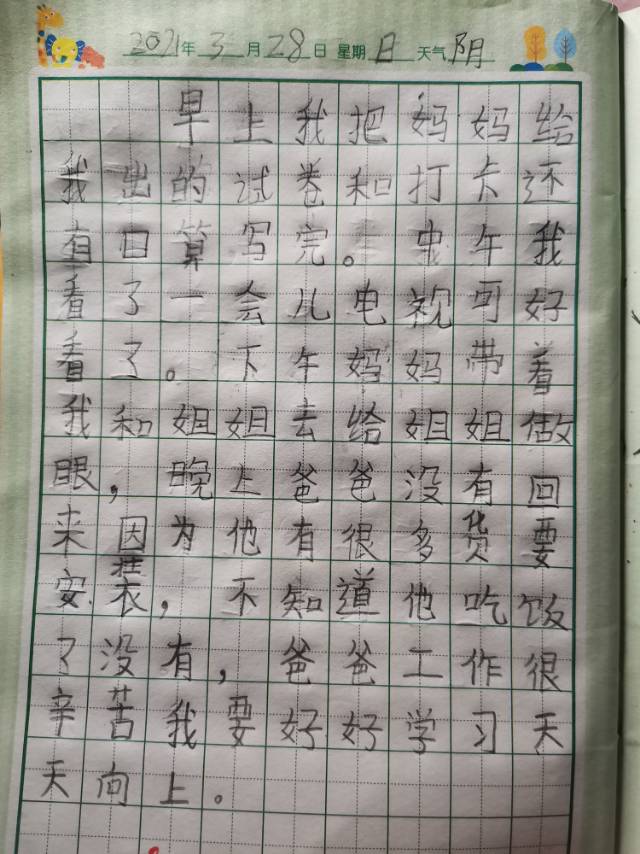 2021年3月28日 星期日 天气阴
早上我把妈妈给
我出的试卷和打卡还
有口算写完。中午我
看了一会儿电视可好
看了。下午妈妈带着
我和姐姐去给姐姐做
眼，晚上爸爸没有回
来因为他有很多货要
安，不知道他吃饭
了没有，爸爸工作很
辛苦我要好好学习天
天向上。